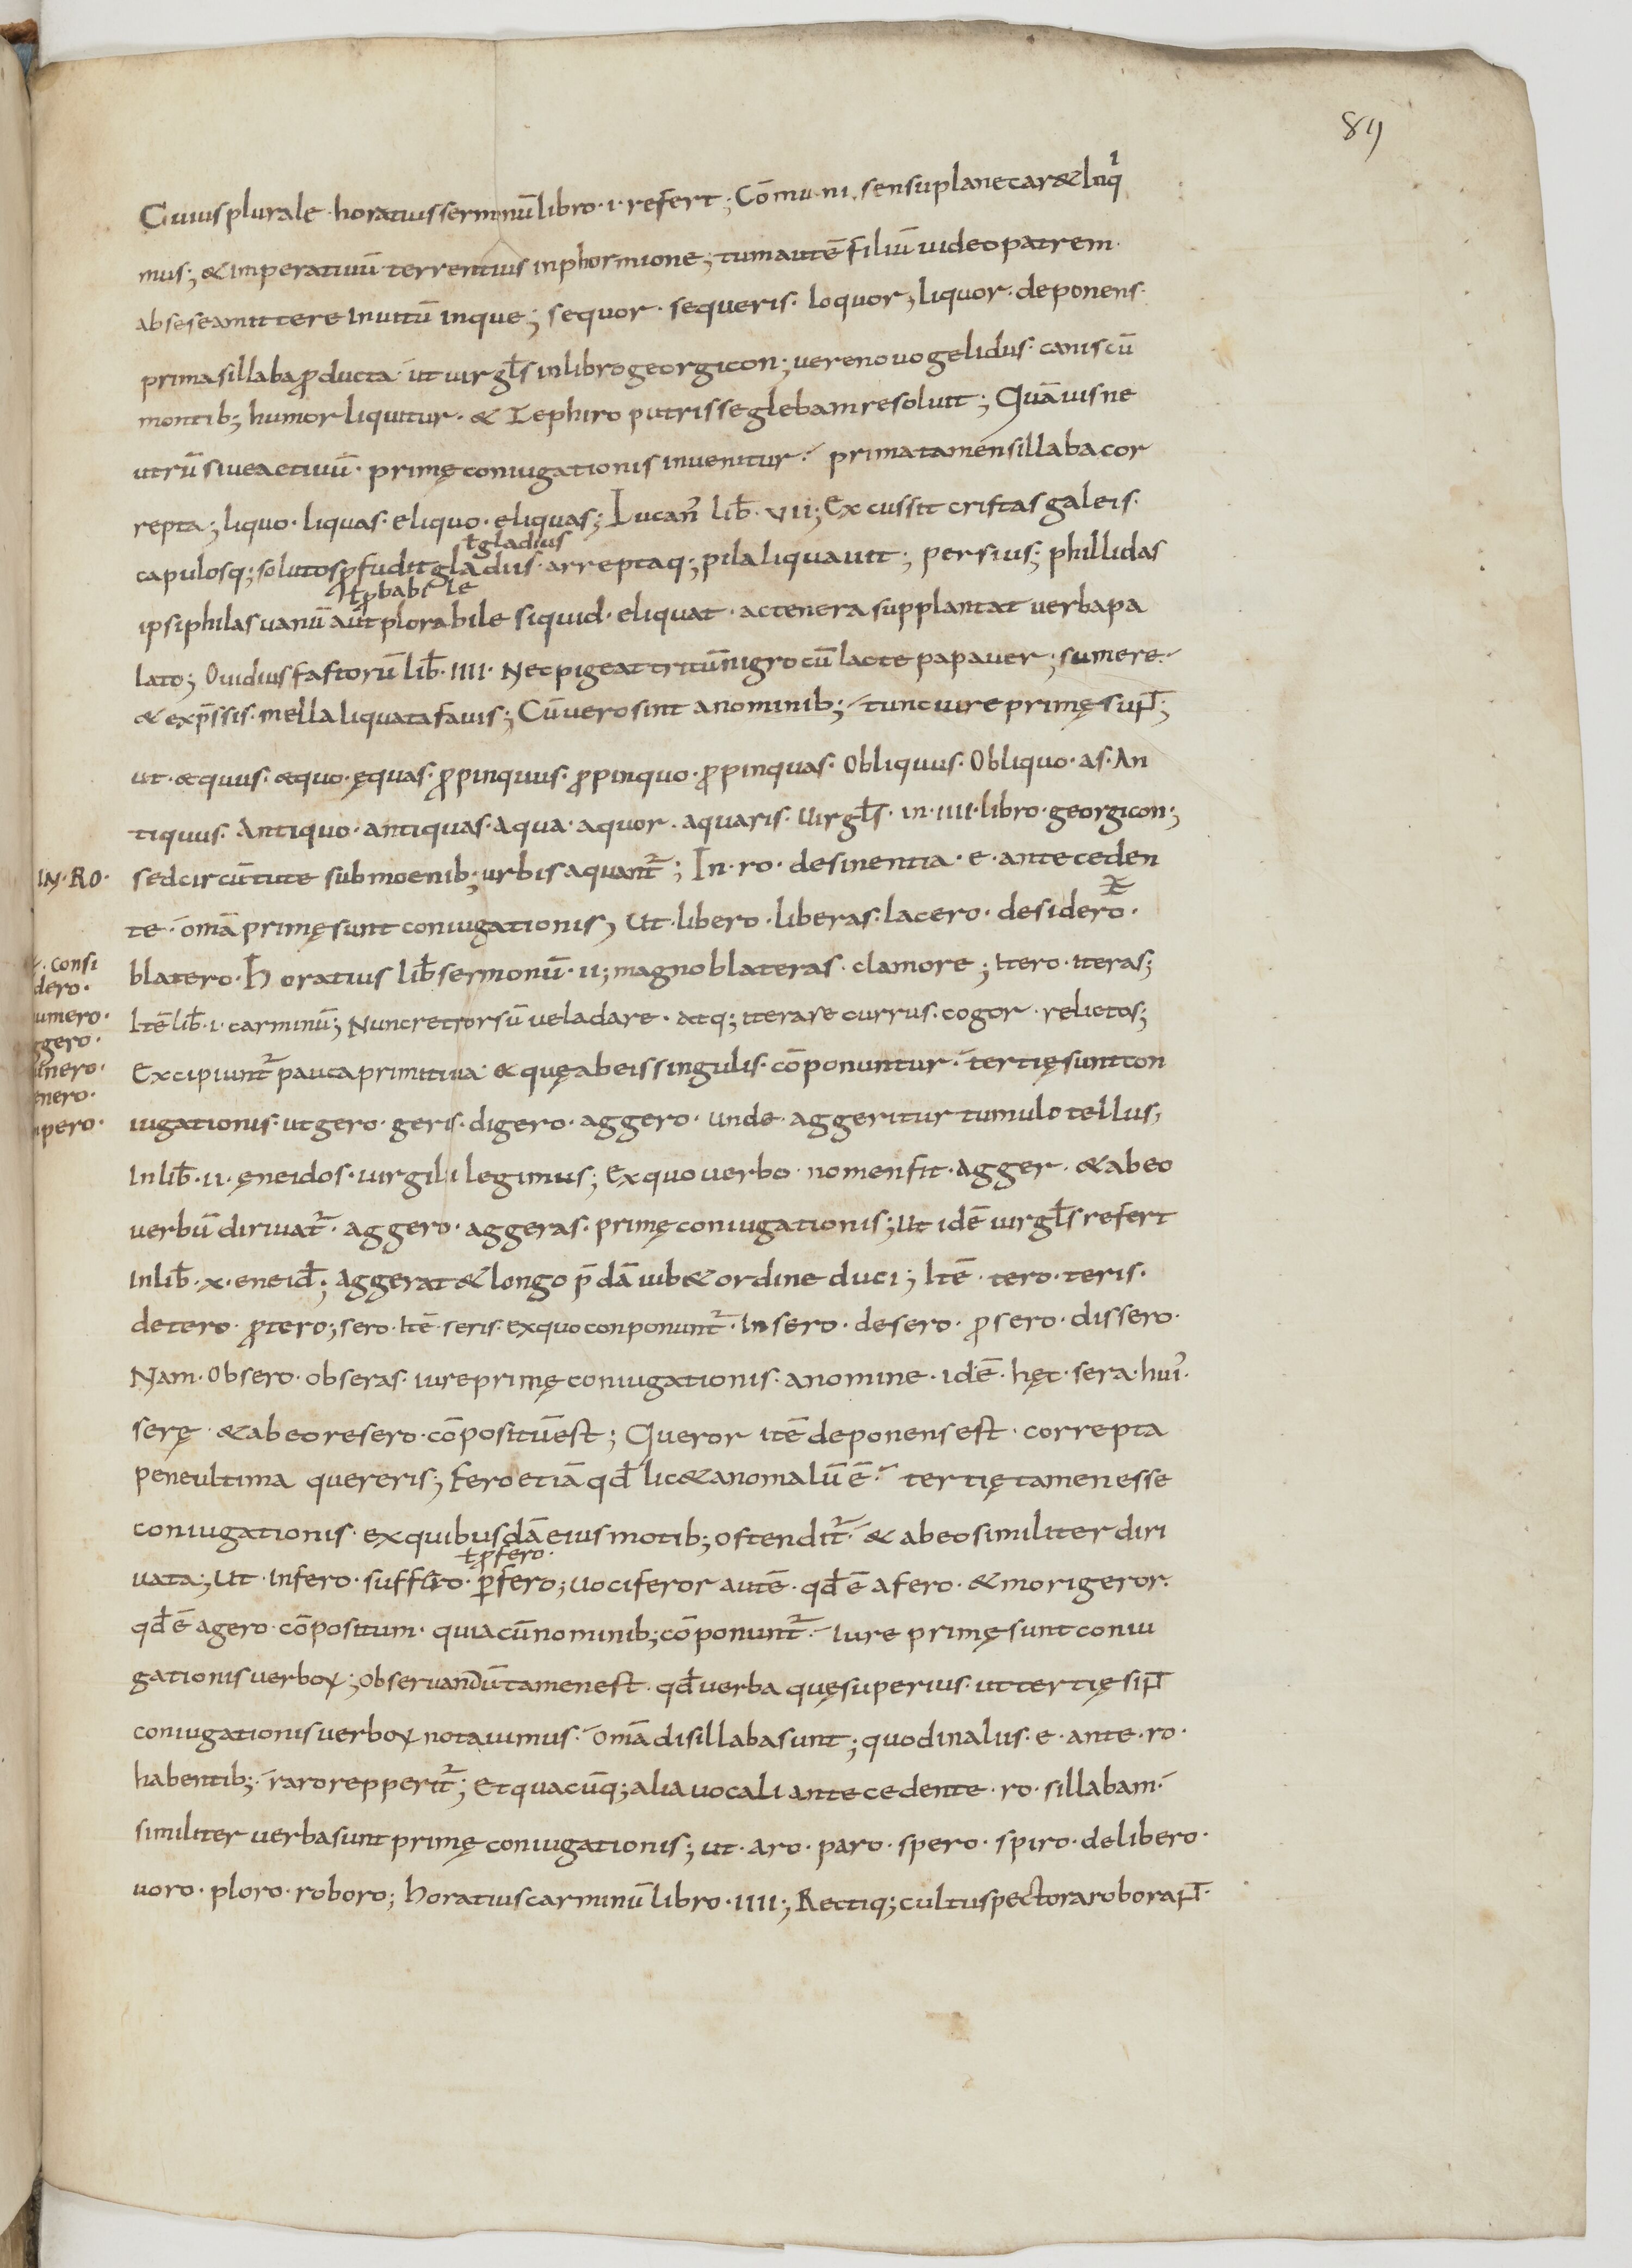 89
Cuius plurale · horatius sermonū libro · i · refert ; Cōmuni · sensu plane car& inq
i
mus ; & imperatiuū terrentius in phormione ; tum autē filiū uideo patrem ·
ab se se amittere inuitū inque ; sequor · sequeris · loquor , liquor · deponens ·
prima sillaba ꝓducta · ut uirgl̄s in libro georgicon ; uere nouo gelidus · canis cū
montib; humor liquitur · & Zephiro putris se gleba m resoluit ; Quāuis ne
utrū siue actiuū · primę coniugationis inuenitur · prima tamen sillaba cor
repta ; liquo · liquas · eliquo · eliquas ; Lucan᾽ lib̄ · vii ; Excussit cristas galeis ·
ł gladius
capulosq; solutos ꝓfudit gladiis · arreptaq; pila liquauit ; persius ; phillidas
ł ꝓbabile
ipsiphilas uanū aut plorabile siquid · eliquat · ac tenera supplantat uerba pa
lato ; Ouidius fastorū lib̄ · IIII · Nec pigeat tritū nigro cū lacte papauer ; sumere ·
& exp̄ssis · mella liquata fauis ; Cū uero sint a nominib; tunc iure primę suɲt̄ ;
ut · æquus · æquo · ęquas · ꝓpinquus · ꝓpinquo · ꝓpinquas · Obliquus · Obliquo · as · An
tiquus · Antiquo · antiquas · Aqua · aquor · aquaris · Uirgl̄s · in · IIII · libro · georgicon ;
IN · RO ·
sed circū tute sub moenib; urbis aquant᷑ ; In · ro · desinentia · e · anteceden
te · om̄a primę sunt coniugationis , Ut · libero · liberas · lacero · desidero ·
blatero · Horatius lib̄ sermonū · ii ; magno blateras · clamore ; Itero · iteras ;
consi
dero ·
umero ·
ggero ·
enero ·
nero ·
pero ·
Itē lib̄ · i · carminū ; Nunc retrorsū uela dare · atq; iterare currus · cogor · relictos ;
Excipiunt᷑ pauca primitiua · & quę ab eis singulis · cōponuntur · tertię sunt con
iugationis · ut gero · geris · digero · aggero · unde · aggeritur tumulo tellus ,
In lib̄ · ii · ęneidos · uirgili legimus ; Ex quo uerbo · nomen fit · Agger · & ab eo
uerbū diriuat᷑ · aggero · aggeras · primę coniugationis ; Ut idē uirgl̄s refert
In lib̄ · x · eneid̄ ; Aggerat & longo p̄dā iub& ordine duci ; Itē · tero · teris ·
detero · ꝓtero ; sero · Itē · seris · ex quo conponunt᷑ · Insero · desero · ꝓsero · dissero ·
Nam · Obsero · obseras · iure primę coniugationis · a nomine · idē · hęc · sera · hui᾽ ·
serę · & ab eo resero · cōpositū est ; Queror itē deponens est · correpta
peneultima quereris ; Fero etiā qd̄ lic& anomalū ē · tertię tamen esse
coniugationis · ex quibusdā eius motib; ostendit᷑ · & ab eo similiter diri
ł ꝓfero ·
uata ; Ut · Infero · suffero · ꝑfero ; uociferor autē · qd̄ ē a fero · & morigeror ·
qd̄ ē a gero · cōpositum · quia cū nominib; cōponunt᷑ · Iure primę sunt coniu
gationis uerboꝝ ; Obseruandū tamen est · qd̄ uerba quę superius · ut tertię siɲt̄
coniugationis uerboꝝ notauimus · om̄a disillaba sunt ; quod in aliis · e · ante · ro ·
habentib; · raro repperit᷑ ; Et quacūq; alia uocali antecedente · ro · sillabam ·
similiter uerba sunt primę coniugationis ; ut · aro · paro · spero · spiro · delibero ·
uoro · ploro · roboro ; horatius carminū libro · IIII ; Rectiq; cultus pectora roboraɲt̄ ·